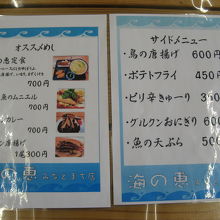 オススメめし
恵定食
700円
魚のムニエル
700円
カレー
700円
唐揚げ
1尾300円
の恵 みなとまち店
サイドメニュー
・鳥の唐揚げ 600円
・ポテトフライ 450円
・ピリ辛きゅーり 350
・グルクンおにぎり 600
・魚の天ぷら 500
海の恵